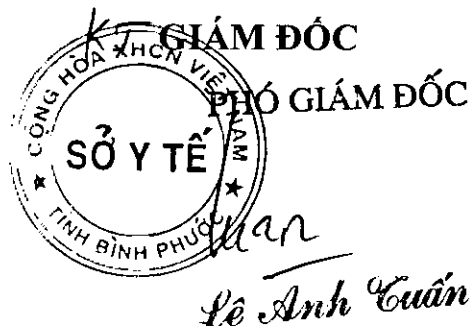 KT GIÁM ĐỐC
PHÓ GIÁM ĐỐC
CỘNG HÒA XHCN VIỆT NAM
SỞ Y TẾ
★ TỈNH BÌNH PHƯỚC ★
Tuan
Lê Anh Tuấn